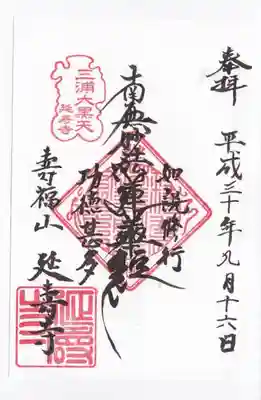 奉拝 平成三十年九月十六日
如説修行
南無妙法蓮華経
功徳甚多
三浦大黒天
延寿寺
壽福山 延壽寺